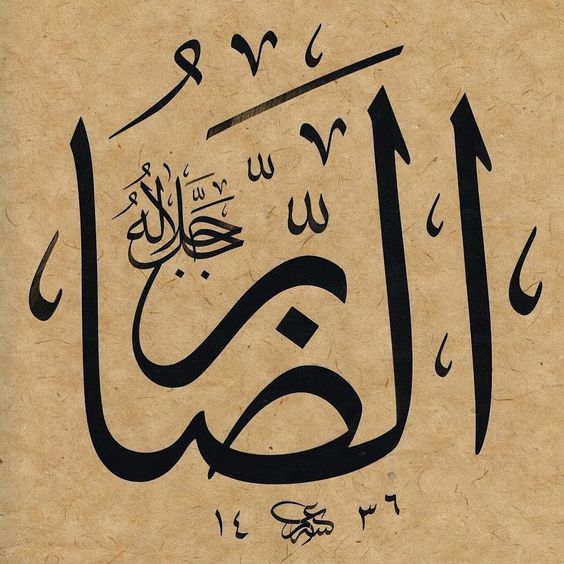 الضَّارُّ
جَلَّ جَلَالُهُ
١٤٣٦